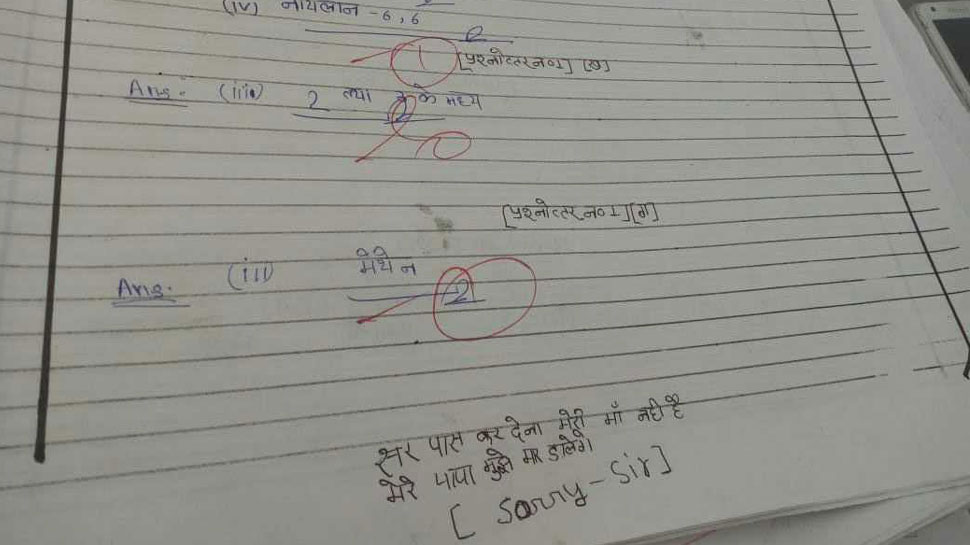 (iv) नायलॉन -6,6
1 [प्रश्नोत्तर न०1] (ख)
Ans:- (iii) 2 तथा के मध्य
2
[प्रश्नोत्तर न०1] [ग]
Ans. (iii) मेथेन
2
सर पास कर देना मेरी माँ नही है
मेरे पापा मुझे मार डालेंगे
[ Sorry-Sir]